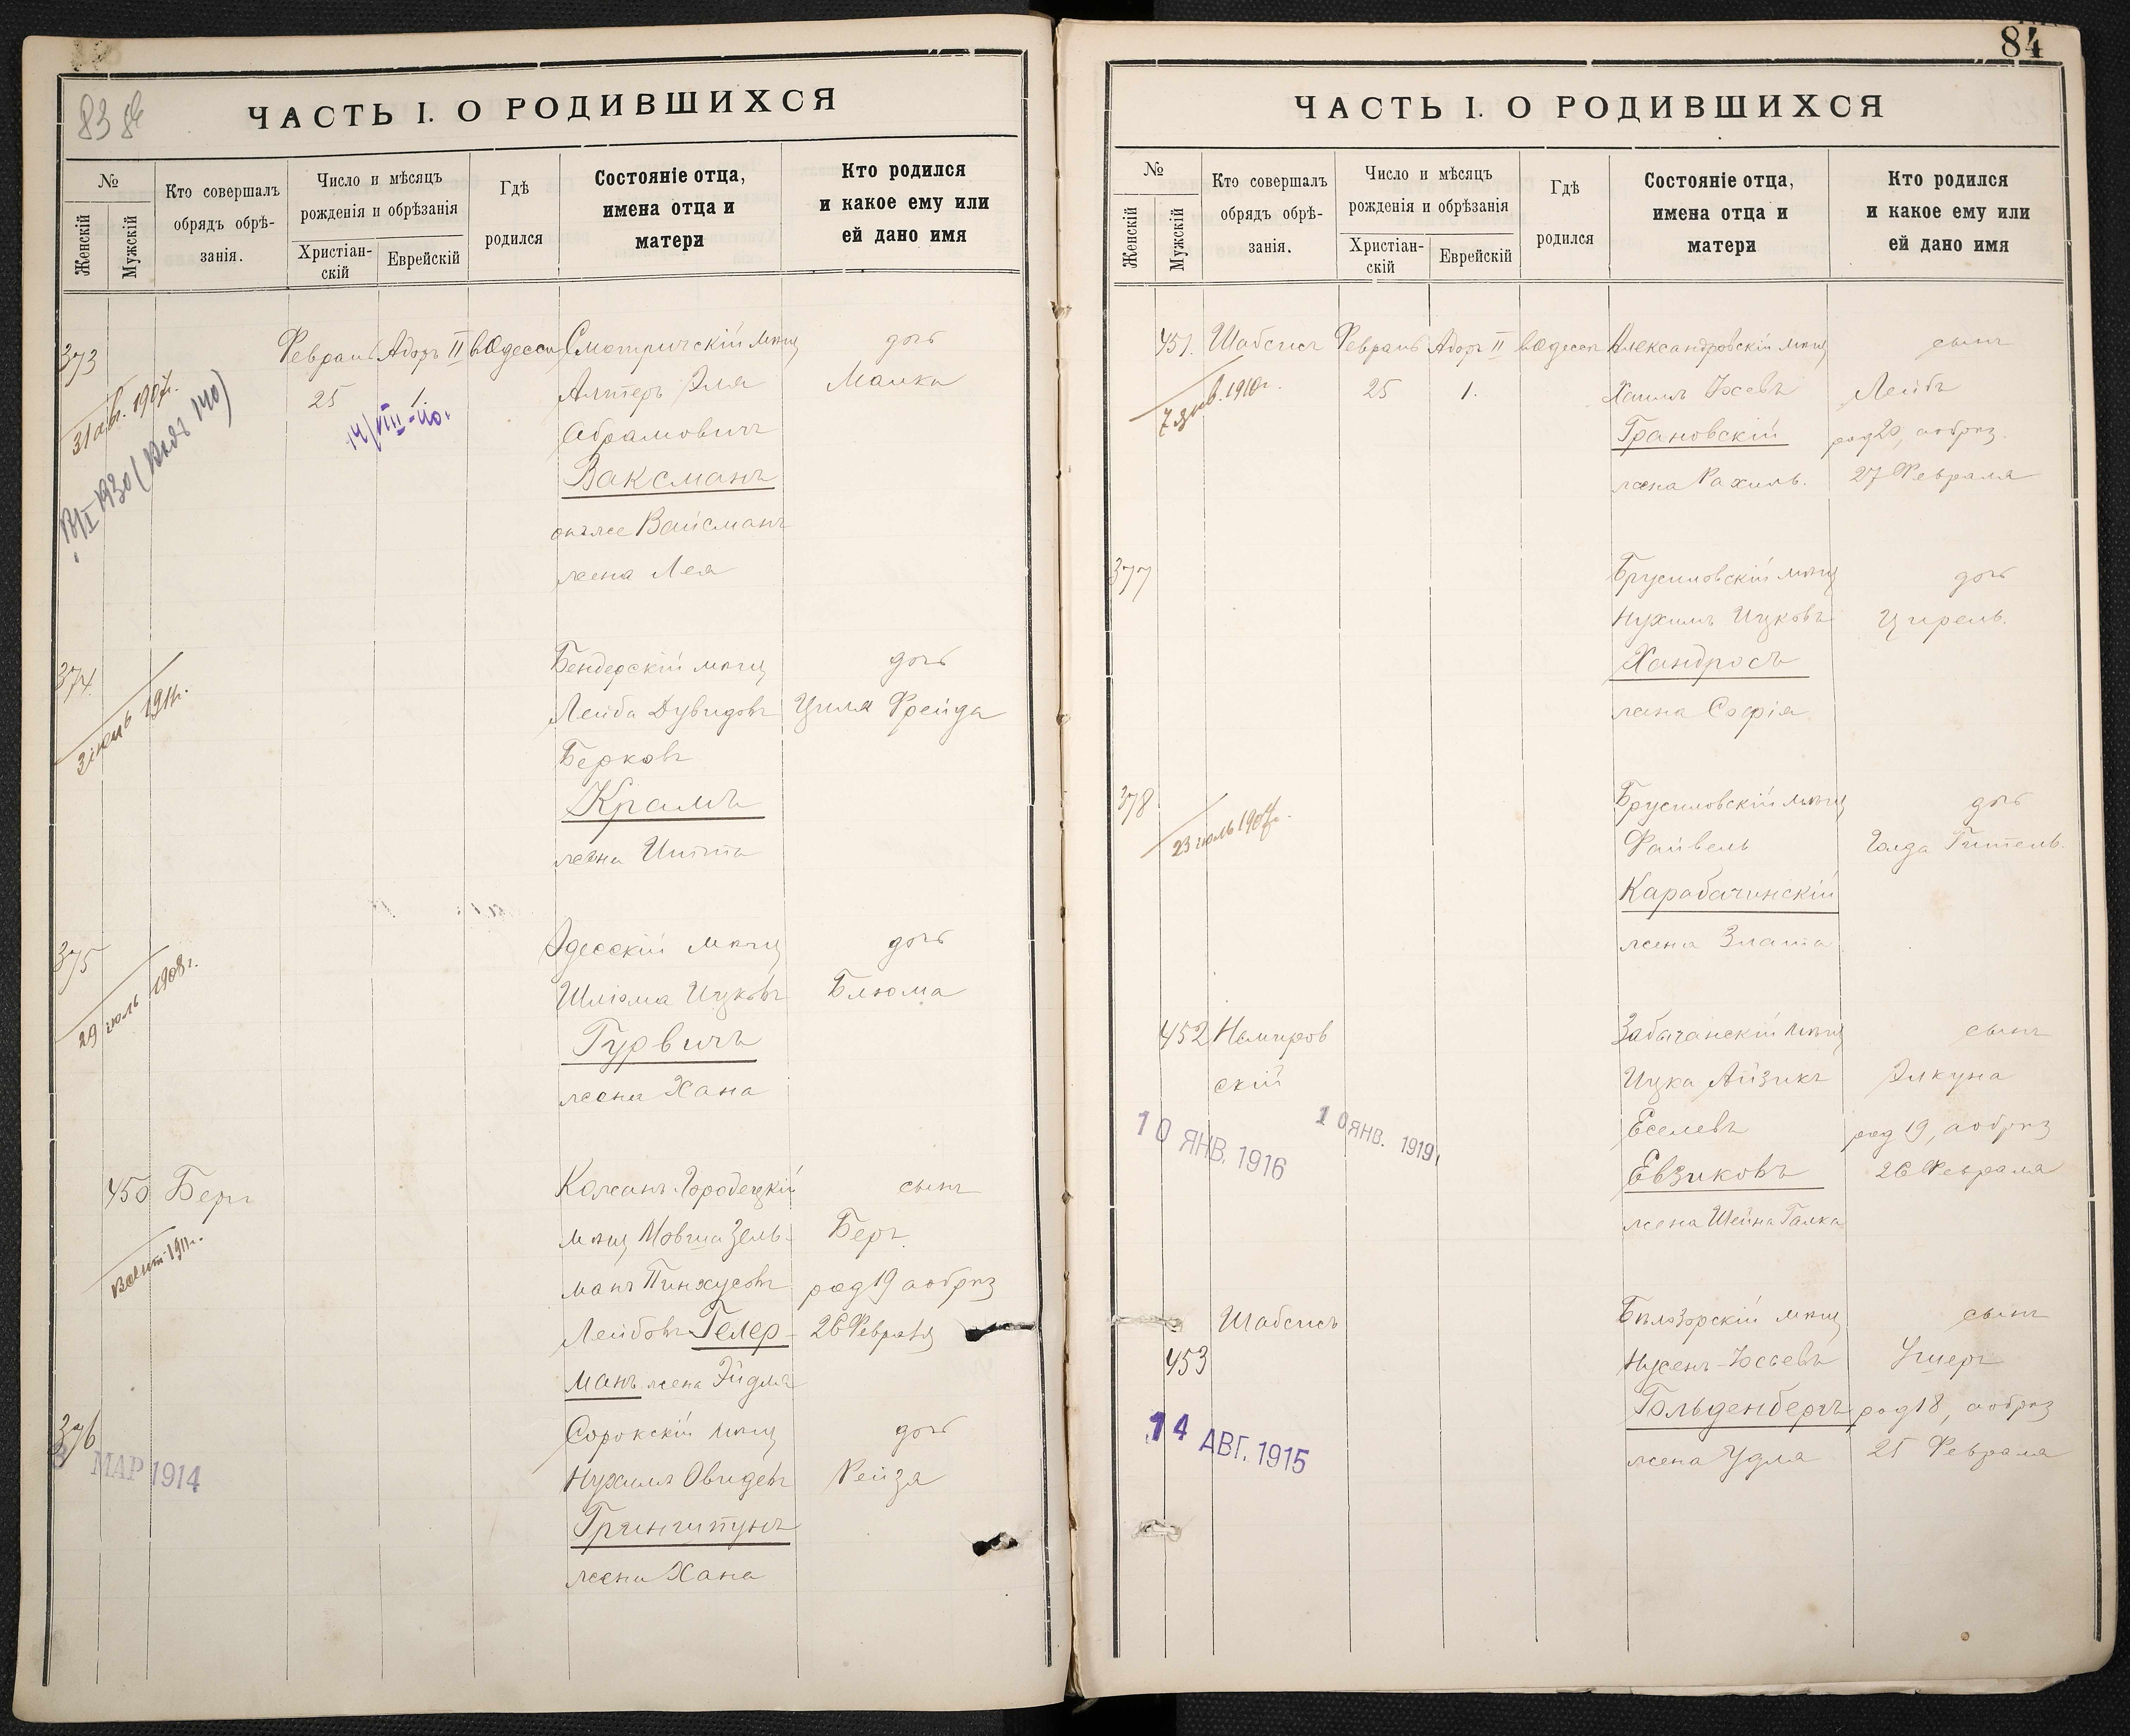 83
ЧАСТЬ I. О РОДИВШИХСЯ
№
Женскій
Мужскій
Кто совершалъ
обрядъ обрѣ-
занія.
Число и мѣсяцъ
рожденія и обрѣзанія
Христіан-
скій
Еврейскій
Гдѣ
родился
Состояніе отца,
имена отца и
матери
Кто родился
и какое ему или
ей дано имя
373
31 авг. 1907г.
1930
140)
Февраль
25
Адоръ II
1.
14/VIII-40.
въ Одессѣ
Смотричскій мѣщ
Алтеръ Эля
Абрамовичъ
Ваксманъ
онъ же Вайсманъ
жена Лея
дочь
Малка
374
3 іюнь 1911г.
Бендерскій мѣщ
Лейба Дувидовъ
Берковъ
Крамъ
жена Итта
дочь
Циля Фрейда
375
29 іюль 1908г.
Одесскій мѣщ
Шлiома Ицковъ
Гурвичъ
жена Хана
дочь
Блюма
450
Берг
1911г.
Колсанъ-Городецкій
мѣщ Мовша Зель-
манъ Пинхусовъ
Лейбовъ Гелер-
манъ жена Эйдля
сынъ
Беръ
род 19 а обрѣз
26 Февраля
376
МАР 1914
Сорокскій мѣщ
Нухимъ Овидевъ
Гринштунъ
жена Хана
дочь
Рейза
84
ЧАСТЬ I. О РОДИВШИХСЯ
№
Женскій
Мужскій
Кто совершалъ
обрядъ обрѣ-
занія.
Число и мѣсяцъ
рожденія и обрѣзанія
Христіан-
скій
Еврейскій
Гдѣ
родился
Состояніе отца,
имена отца и
матери
Кто родился
и какое ему или
ей дано имя
451.
7 янв. 1910г.
Шабсисъ
Февраль
25
Адоръ II
1.
въ Одессѣ
Александровскій мѣщ
Хаимъ Іосевъ
Грановскій
жена Рахиль.
сынъ
Лейбъ
род 20, а обрѣз.
27 Февраля
377
Брусиловскій мѣщ
Нухимъ Ицковъ
Хандросъ
жена Софія
дочь
Цирель.
378
23 іюль 1907г.
Брусиловскій мѣщ
Файвель
Карабачинскій
жена Злата
дочь
Голда Гитель.
452
Немиров
скій
10 ЯНВ. 1916
10 ЯНВ. 1919
Забычанскій мѣщ
Ицка Айзикъ
Еселевъ
Евзиковъ
жена Шейна Галка
сынъ
Элкуна
род 19, а обрѣз
26 Февраля
453
Шабсисъ
14 АВГ. 1915
Бѣлозорскій мѣщ
Нусенъ-Іосьевъ
Гольденбергъ
жена Удля
сынъ
Ушеръ
род 18, а обрѣз
25 Февраля